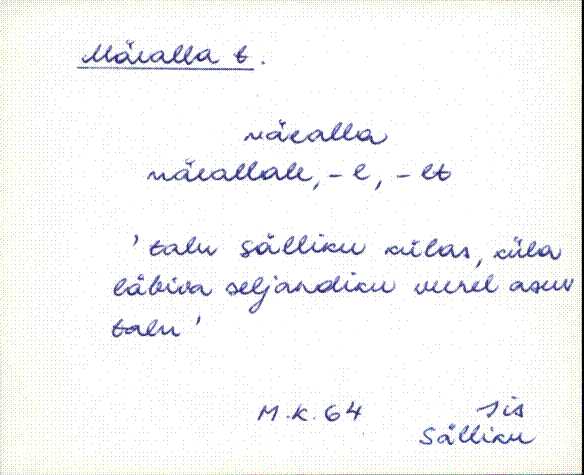 Märalla t.
märalla
märallale, - l, - lt
' talu Sälliku külas, küla
läbiva seljandiku veerel asuv
talu '
M. K. 64 Iis
Sälliku